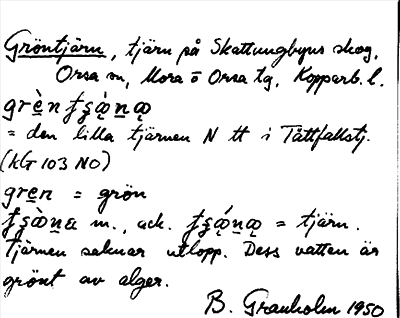 Gröntjärn, tjärn på Skattungbyns skog,
Orsa sn, Mora o Orsa tg, Kopparb. l.
= den lilla tjärnen N tt i Tåtfallstj.
(kG 103 NO)
= grön
m., ack. = tjärn.
Tjärnen saknar utlopp. Dess vatten är
grönt av alger.
B. Granholm 1950